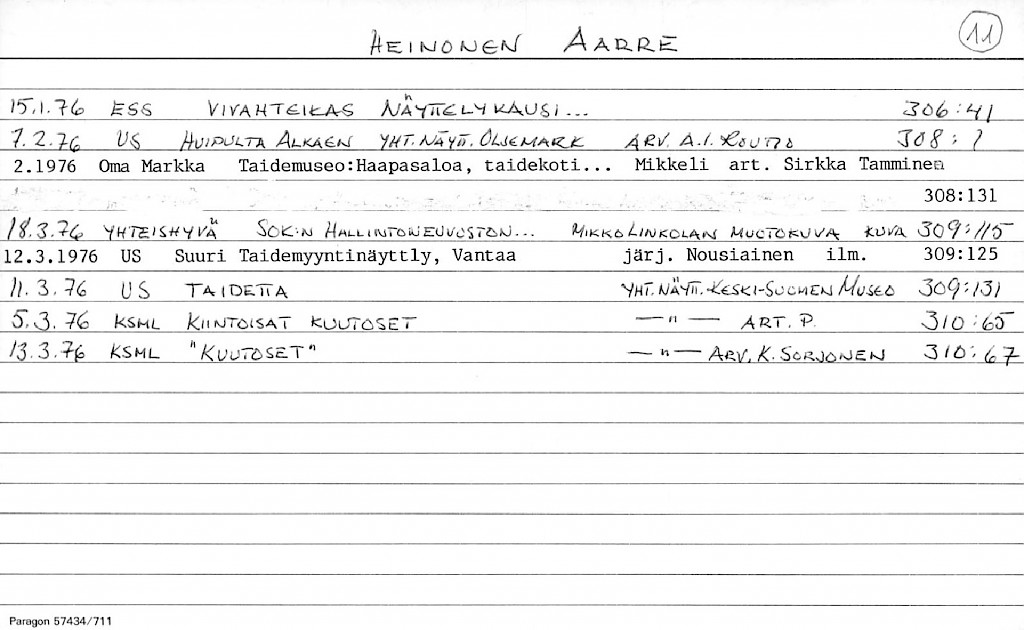 HEINONEN AARRE 11
15.1.76 ESS VIVAHTEIKAS NÄYTTELYKAUSI... 306:41
7.2.76 US HUIPULTA ALKAEN YHT.NÄYTT. OLJEMARK ARV. A.I. ROUTIO 308:7
2.1976 Oma Markka Taidemuseo:Haapasaloa, taidekoti... Mikkeli art. Sirkka Tamminen
308:131
18.3.76 YHTEISHYVÄ SOK:N HALLINTONEUVOSTON... MIKKO LINKOLAN MUOTOKUVA KUVA 309:115
12.3.1976 US Suuri Taidemyyntinäyttly, Vantaa järj. Nousiainen ilm. 309:125
11.3.76 US TAIDETTA YHT.NÄYTT. KESKI-SUOMEN MUSEO 309:131
5.3.76 KSML KIINTOISAT KUUTOSET —"— ART. P. 310:65
13.3.76 KSML "KUUTOSET" —"— ARV. K. SORJONEN 310:67
Paragon 57434/711